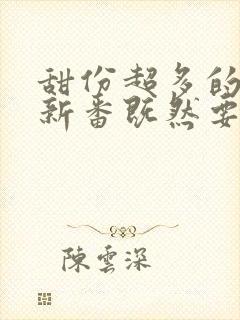 甜份超多的
新番既然要
陳雲深